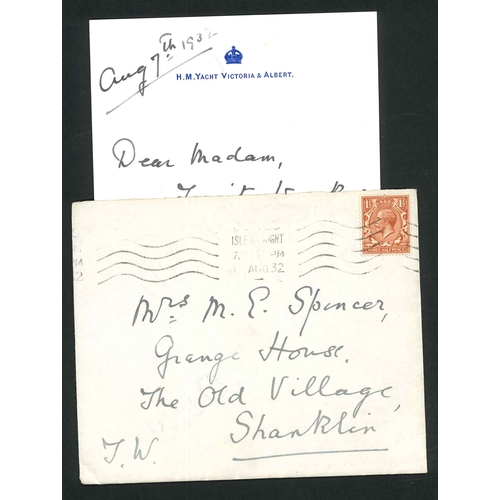 Aug 7th 1932
H.M. YACHT VICTORIA & ALBERT.
Dear Madam,
ISLE WIGHT
7. PM
AUG 32
PM
2
1½D 1½D
THREE HALF PENCE
Mrs M. E. Spencer,
Grange House.
The Old Village,
Shanklin
I.W.